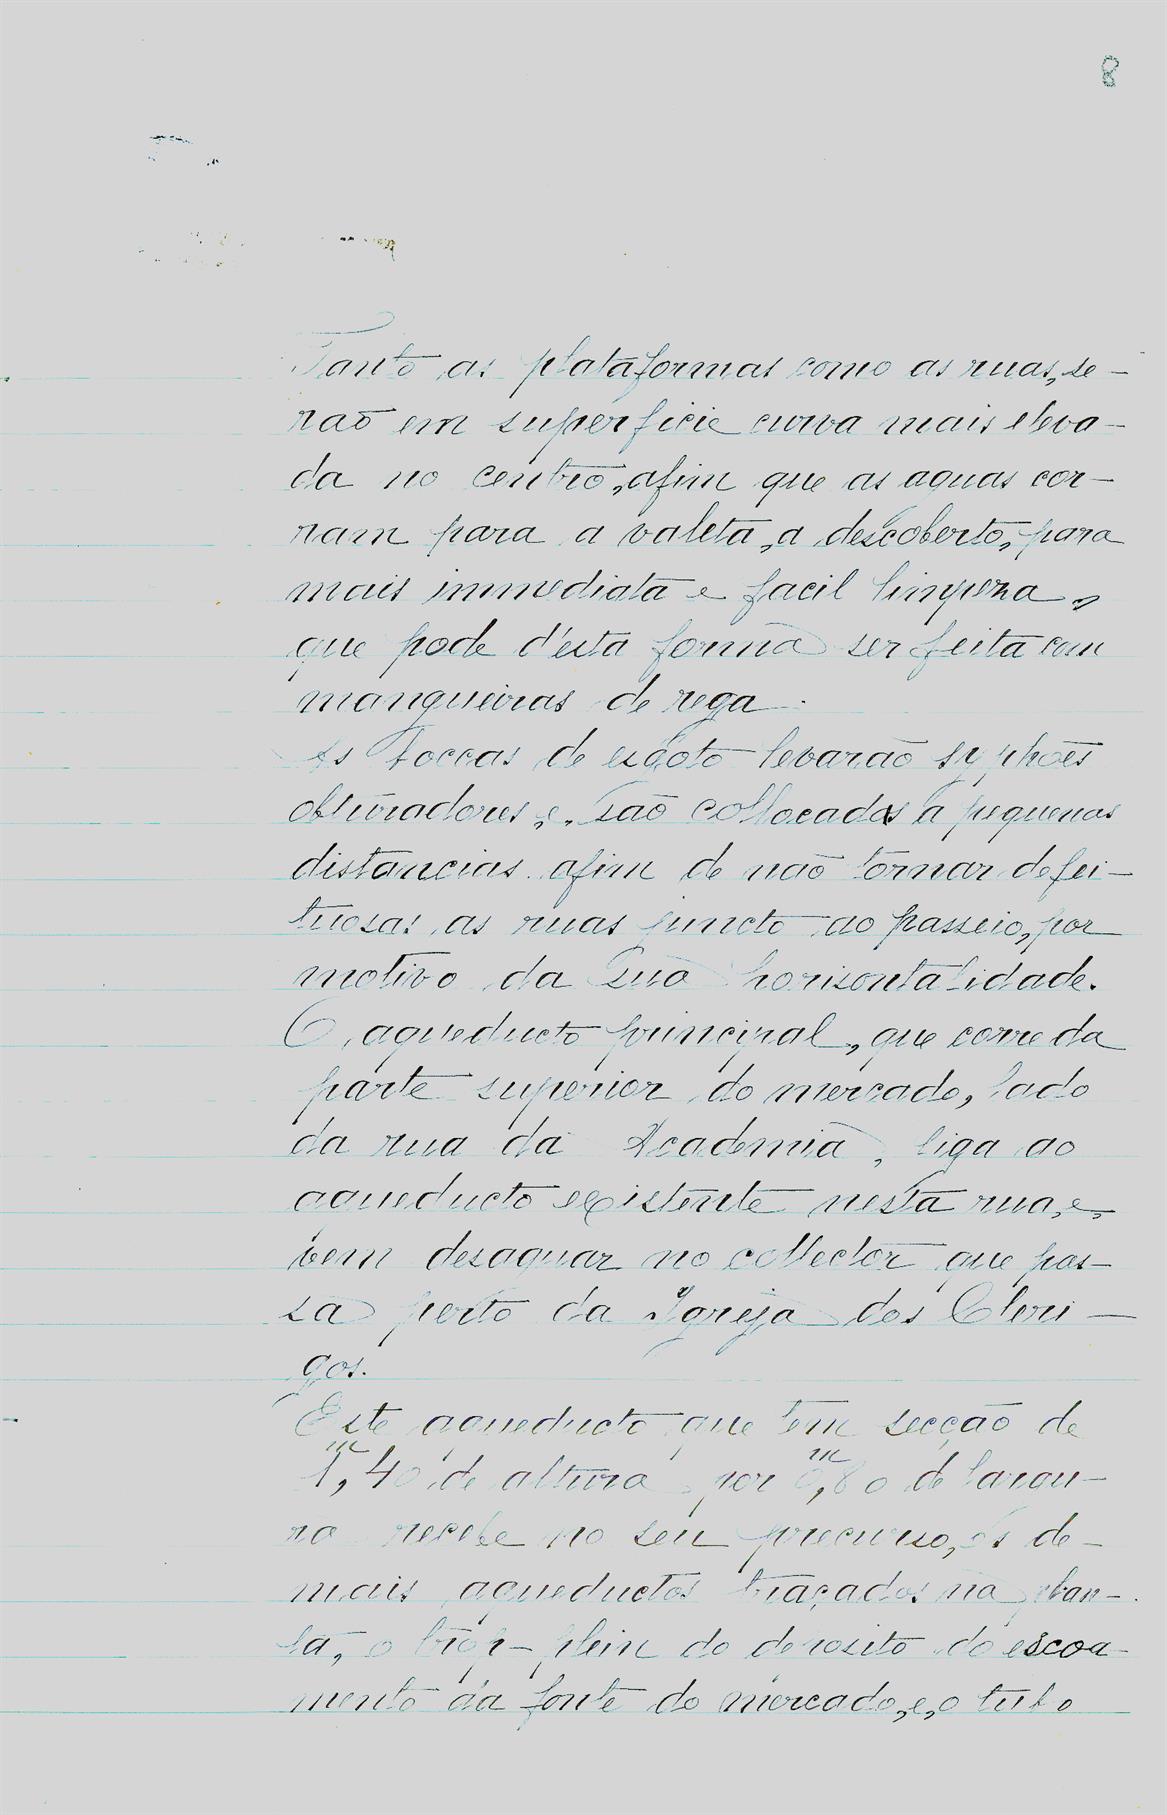 8
Tanto as plataformas como as ruas, se-
rão em superficie curva mais eleva-
da no centro, afim que as aguas cor-
ram para a valeta, a descoberto, para
mais immediata e facil limpeza,
que pode d'esta forma ser feita com
mangueiras de rega.
As boccas de esgoto levarão syphões
obturadores, e, são collocadas a pequenas
distancias afim de não tornar defei-
tuosas as ruas juncto ao passeio, por
motivo da sua horisontalidade.
O aqueducto principal, que corre da
parte superior do mercado, lado
da rua da Academia, liga ao
aqueducto existente nesta rua, e,
vem desaguar no collector que pas-
sa perto da Igreja dos Cleri-
gos.
Este aqueducto que tem secção de
1,ᵐ40 de altura por 0,ᵐ80 de largu-
ra recebe no seu precurso, os de-
mais aqueductos traçados na plan-
ta, o trop-plein do deposito do escoa-
mento da fonte do mercado, e, o tubo